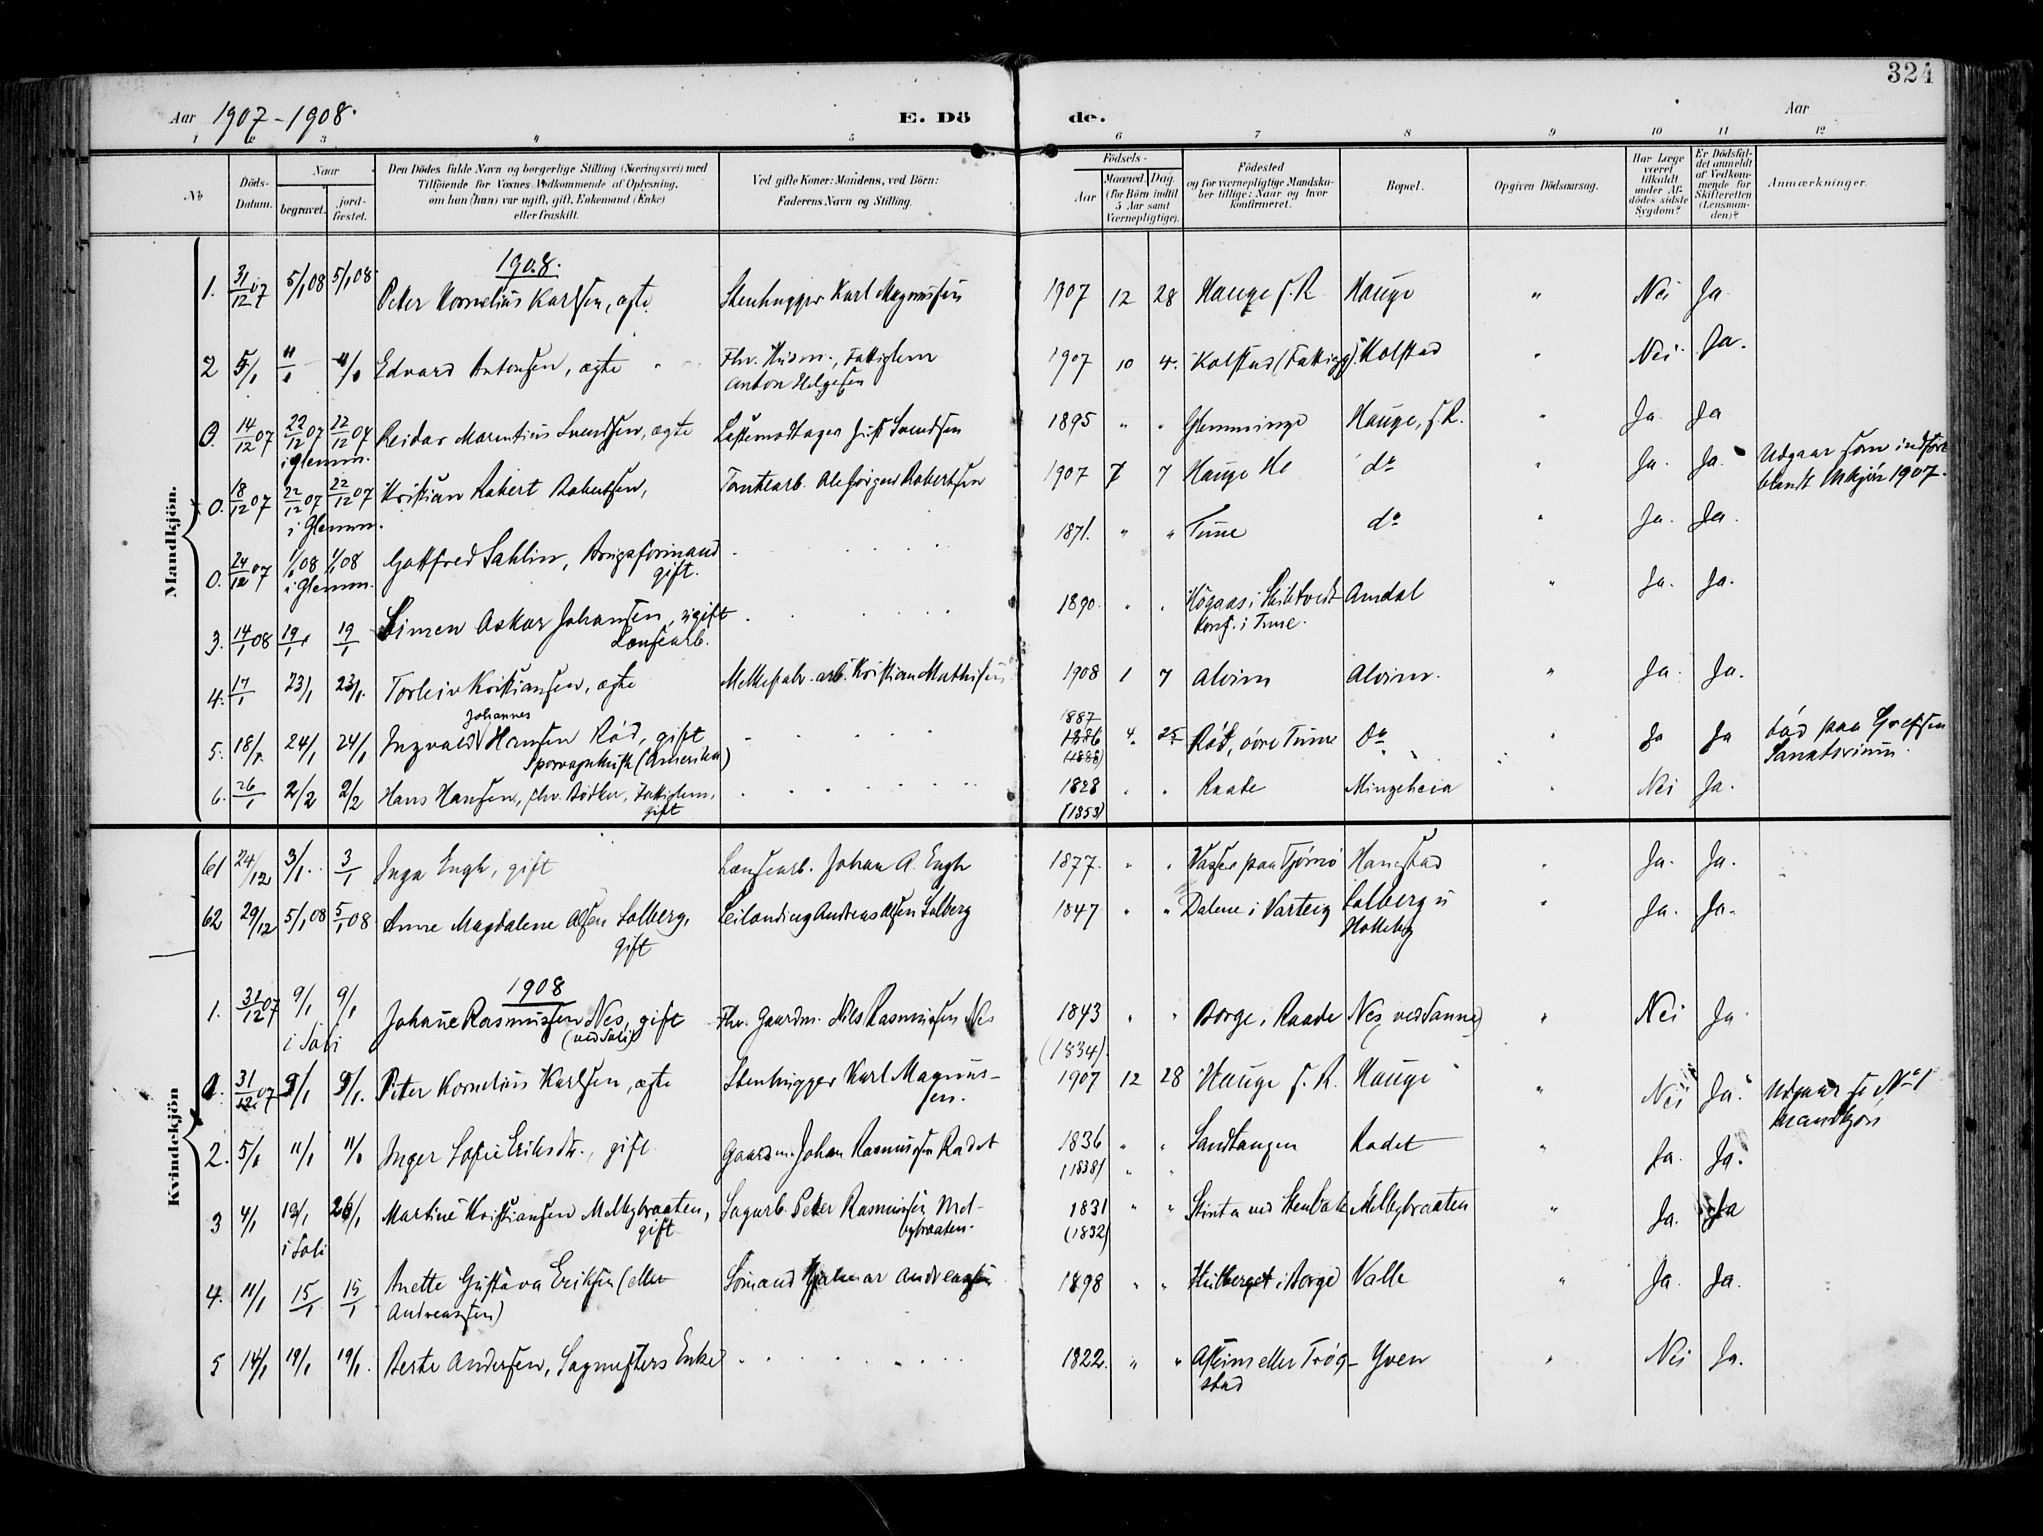 324
Aar 1907-1908. E. Dö de. Aar
1 2 3 4 5 6 7 8 9 10 11 12
No
Döds-Datum.
Naar
begravet.
jord-fæstet.
Den Dödes fulde Navn og borgerlige Stilling (Næringsvei) med
Tilföiende for Voxnes Vedkommende af Oplysning,
om han (hun) var ugift, gift, Enkemand (Enke)
eller fraskilt.
Ved gifte Koner: Mandens, ved Börn:
Faderens Navn og Stilling.
Födsels-
Aar
Maaned. Dag.
(for Börn indtil
5 Aar samt
Værnepligtige).
Födested
og for værnepligtige Mandska-
ber tillige: Naar og hvor
konfirmeret.
Bopæl.
Opgiven Dödsaarsag.
Har Læge
været
tilkaldt
under Af-
dödes sidste
Sygdom?
Er Dödsfal-
det anmeldt
af Vedkom-
mende for
Skifteretten
(Lensman-
den)?
Anmærkninger.
Mandkjön.
1908.
1. 31/12 07 5/1 08 5/1 08 Peter Kornelius Karlsen, ægte. Stenhugger Karl Magnussen 1907 12 28 Hauge f. R. Hauge " Nei Ja
2 5/1 11/1 11/1 Edvard Antonsen, ægte Fhv. Husm., Fattiglem 1907 10 4. Kolstad (Fattigg). Kolstad " Nei Ja.
Anton Helgesen
0. 14/12 07 22/12 07 22/12 07 Reidar Marentius Svendsen, ægte Lastemodtager Svendsen 1895 " " Glemminge Hauge, f. R. " Ja Ja
i Glemm.
0. 18/12 07 22/12 07 22/12 07 Kristian Robert Robertsen, Tomtearb. Ole Jörgen Robertsen 1907 7 7 Hauge do " Ja. Ja. Udgaar som indført
blandt Mkjön 1907.
i Glemm.
0. 24/12 07 1/1 08 1/1 08 Gottfred Sahlin, Brugsformand 1871. " " Tune do " Ja. Ja.
i Glemm. gift.
3. 14/1 08 19/1 19/1 Simen Oskar Johansen, ugift 1890. " " Högaas i Skibtvedt Amdal " Ja. Ja.
Lensearb. Konf. i Tune.
4. 17/1 23/1 23/1. Torleiv Kristiansen, ægte Melkefabr. arb. Kristian Mathisen 1908 1 7 Alvim Alvim. " Ja. Ja.
Johannes 1887
5. 18/1 24/1 24/1 Ingvald Hansen Röd, gift 1886 4. 25 Röd, övre Tune Do " Ja Ja Död paa Grefsen
Sporvognbetjent (Amerika) (1888) Sanatorium.
6. 26/1 2/2 2/2 Hans Hansen, fhv. Bödker, Fattiglem, 1828 " " Raade Mingeheia " Nei Ja.
gift (1853)
Kvindekjön
61 24/12 3/1. 3/1 Inga Engh, gift Lensearb. Johan A. Engh 1877. " " Vasser paa Tjömö Hanestad " Ja. Ja.
62 29/12 5/1 08 5/1 08 Anne Magdalene Olsen Solberg, Leilending Andreas Olsen Solberg 1847 " " Dalene i Varteig Solberg u " Ja. Ja.
gift
1908
1. 31/12 07 9/1 9/1 Johanne Rasmussen Nes, gift Fhv. Gaardm. Nils Rasmussen Nes 1843 " " Borge i Raade Nes ved Sanne " Nei Ja
i Soli (ved Soli) (1834).
31/12 07 9/1 9/1. Peter Kornelius Karlsen, ægte Stenhugger Karl Magnus- 1907 12 28 Hauge f. R. Hauge " Nei Ja. Udgaar se No 1
sen. Mandkjön
2. 5/1 11/1 11/1 Inger Sofie Eriksdtr., gift Gaardm. Johan Rasmussen Rødet 1836 " " Sandtangen Rødet " Ja. Ja.
(1838) " "
3 4/1 12/1 26/1 Martine Kristiansen Melbybraaten, Sagarb. Peter Rasmussen Mel- 1831 " " Melbybraaten " Ja. Ja
i Soli gift bybraaten. (1832)
4. 11/1 15/1 15/1 Anette Gustava Eriksen (eller Sömand Hjalmar Andreassen 1898 " " i Borge Valle " Ja. Ja.
Andreassen)
5 14/1 19/1 19/1. Berte Andersen, Sagmesters Enke 1822. " " Askim eller Trög- Yven " Nei Ja.
stad